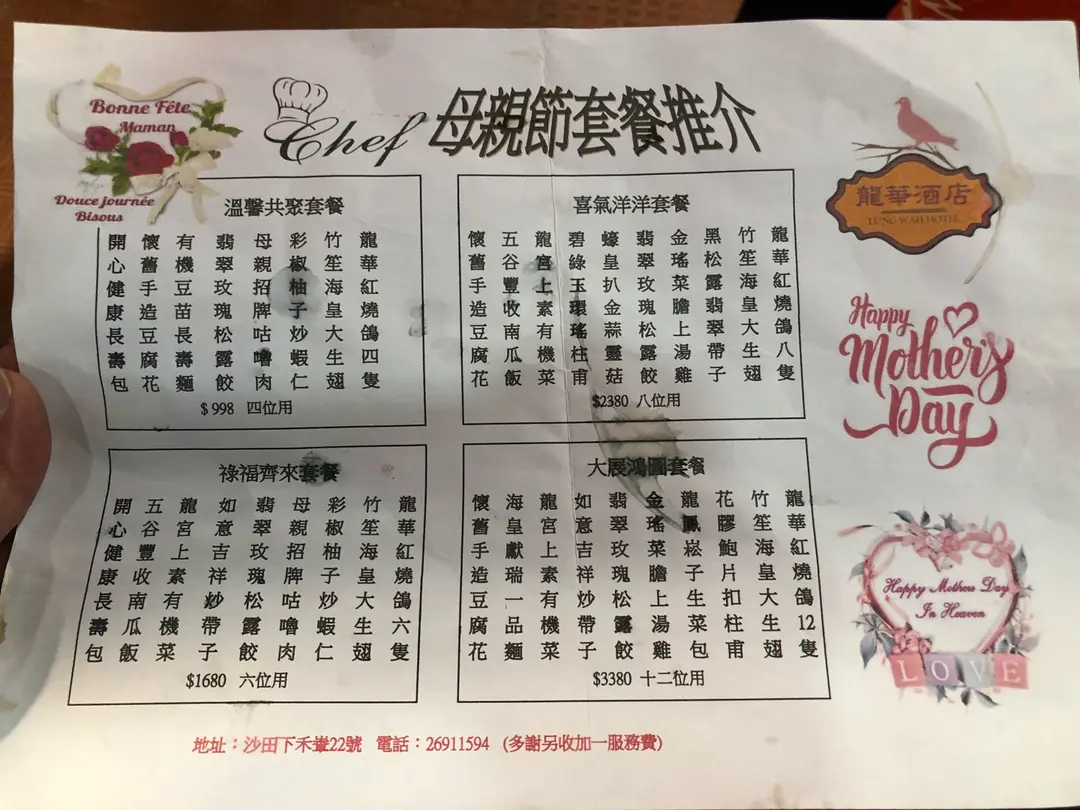 Bonne Fête
Maman
Douce journée
Bisous
Chef 母親節套餐推介
龍華酒店
LUNG WAH HOTEL
溫馨共聚套餐
龍華紅燒鴿四隻
竹笙海皇大生翅
彩椒柚子炒蝦仁
母親招牌咕嚕肉
翡翠玫瑰松露餃
有機豆苗長壽麵
懷舊手造豆腐花
開心健康長壽包
$998 四位用
喜氣洋洋套餐
龍華紅燒鴿八隻
竹笙海皇大生翅
黑松露翡翠帶子
金瑤菜膽上湯雞
翡翠玫瑰松露餃
蠔皇扒金蒜靈菇
碧綠玉環瑤柱甫
龍宮上素有機菜
五谷豐收南瓜飯
懷舊手造豆腐花
$2380 八位用
Happy
Mother's
Day
祿福齊來套餐
龍華紅燒鴿六隻
竹笙海皇大生翅
彩椒柚子炒蝦仁
母親招牌咕嚕肉
翡翠玫瑰松露餃
如意吉祥炒帶子
龍宮上素有機菜
五谷豐收南瓜飯
開心健康長壽包
$1680 六位用
大展鴻圖套餐
龍華紅燒鴿12隻
竹笙海皇大生翅
花膠鮑片扣柱甫
龍鳳崧子生菜包
金瑤菜膽上湯雞
翡翠玫瑰松露餃
如意吉祥炒帶子
龍宮上素有機菜
海皇獻瑞一品麵
懷舊手造豆腐花
$3380 十二位用
Happy Mothers Day
In Heaven
LOVE
地址：沙田下禾輋22號 電話：26911594 (多謝另收加一服務費)